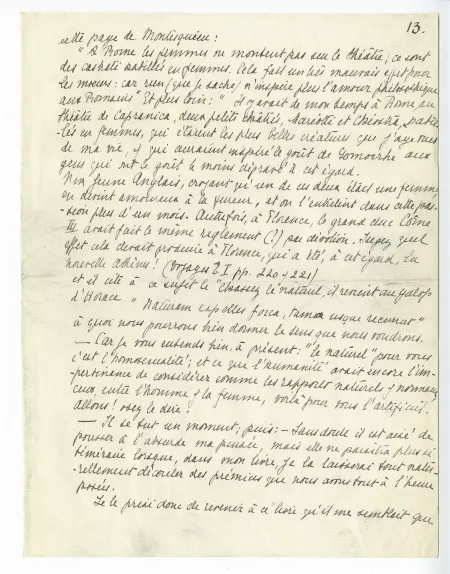 13.
cette page de Montesquieu :
"A Rome les femmes ne montent pas sur le théâtre ; ce sont
des castrati habillés en femmes. Cela fait un très mauvais effet pour
les mœurs : car rien (que je sache) n'inspire plus l'amour philosophique
aux Romains" Et plus loin : " Il y avait de mon temps à Rome, au
théâtre de Capranica, deux petits châtrés, Mariotti et Chiostra, habil-
lés en femmes, qui étaient les plus belles créatures que j'aye vues
de ma vie, & qui auraient inspiré le goût de Gomorrhe aux
gens qui ont le goût le moins dépravé à cet égard.
Un jeune Anglais, croyant qu'un de ces deux était une femme
en devint amoureux à la fureur, et on l'entretint dans cette pas-
-sion plus d'un mois. Autrefois, à Florence, le grand duc Côme
III avait fait le même reglement (!) par dévotion. Jugez quel
effet cela devait produire à Florence, qui a été, à cet égard, la
nouvelle Athènes ! (Voyages T. I pp. 220 & 221)
et il cite à ce sujet le "Chassez le naturel, il revient au galop
d'Horace " Naturam expelles forca, tamen usque recurret"
à quoi nous pourrons bien donner le sens que nous voudrons.
— Car je vous entends bien, à présent : "le naturel" pour vous
c'est l'homosexualité ; et ce que l'humanité avait encore l'im-
-pertinence de considérer comme les rapports naturels & normaux,
ceux, entre l'homme & la femme, voilà pour vous l'artificiel.
Allons ! osez le dire !
— Il se tut un moment ; puis : – Sans doute il est aisé de
pousser à l'absurde ma pensée, mais elle ne paraîtra plus si
téméraire lorsque, dans mon livre, je la laisserai tout natu-
-rellement découler des prémices que nous avons tout à l'heure
posées.
Je le priai donc de revenir à ce livre qu'il me semblait que